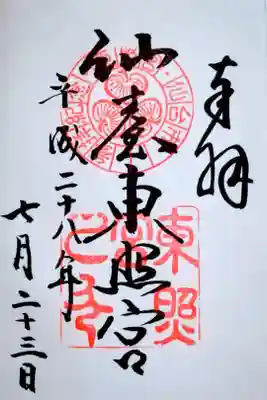 奉拝
仙臺東照宮
平成二十八年
七月二十三日
東照
宮